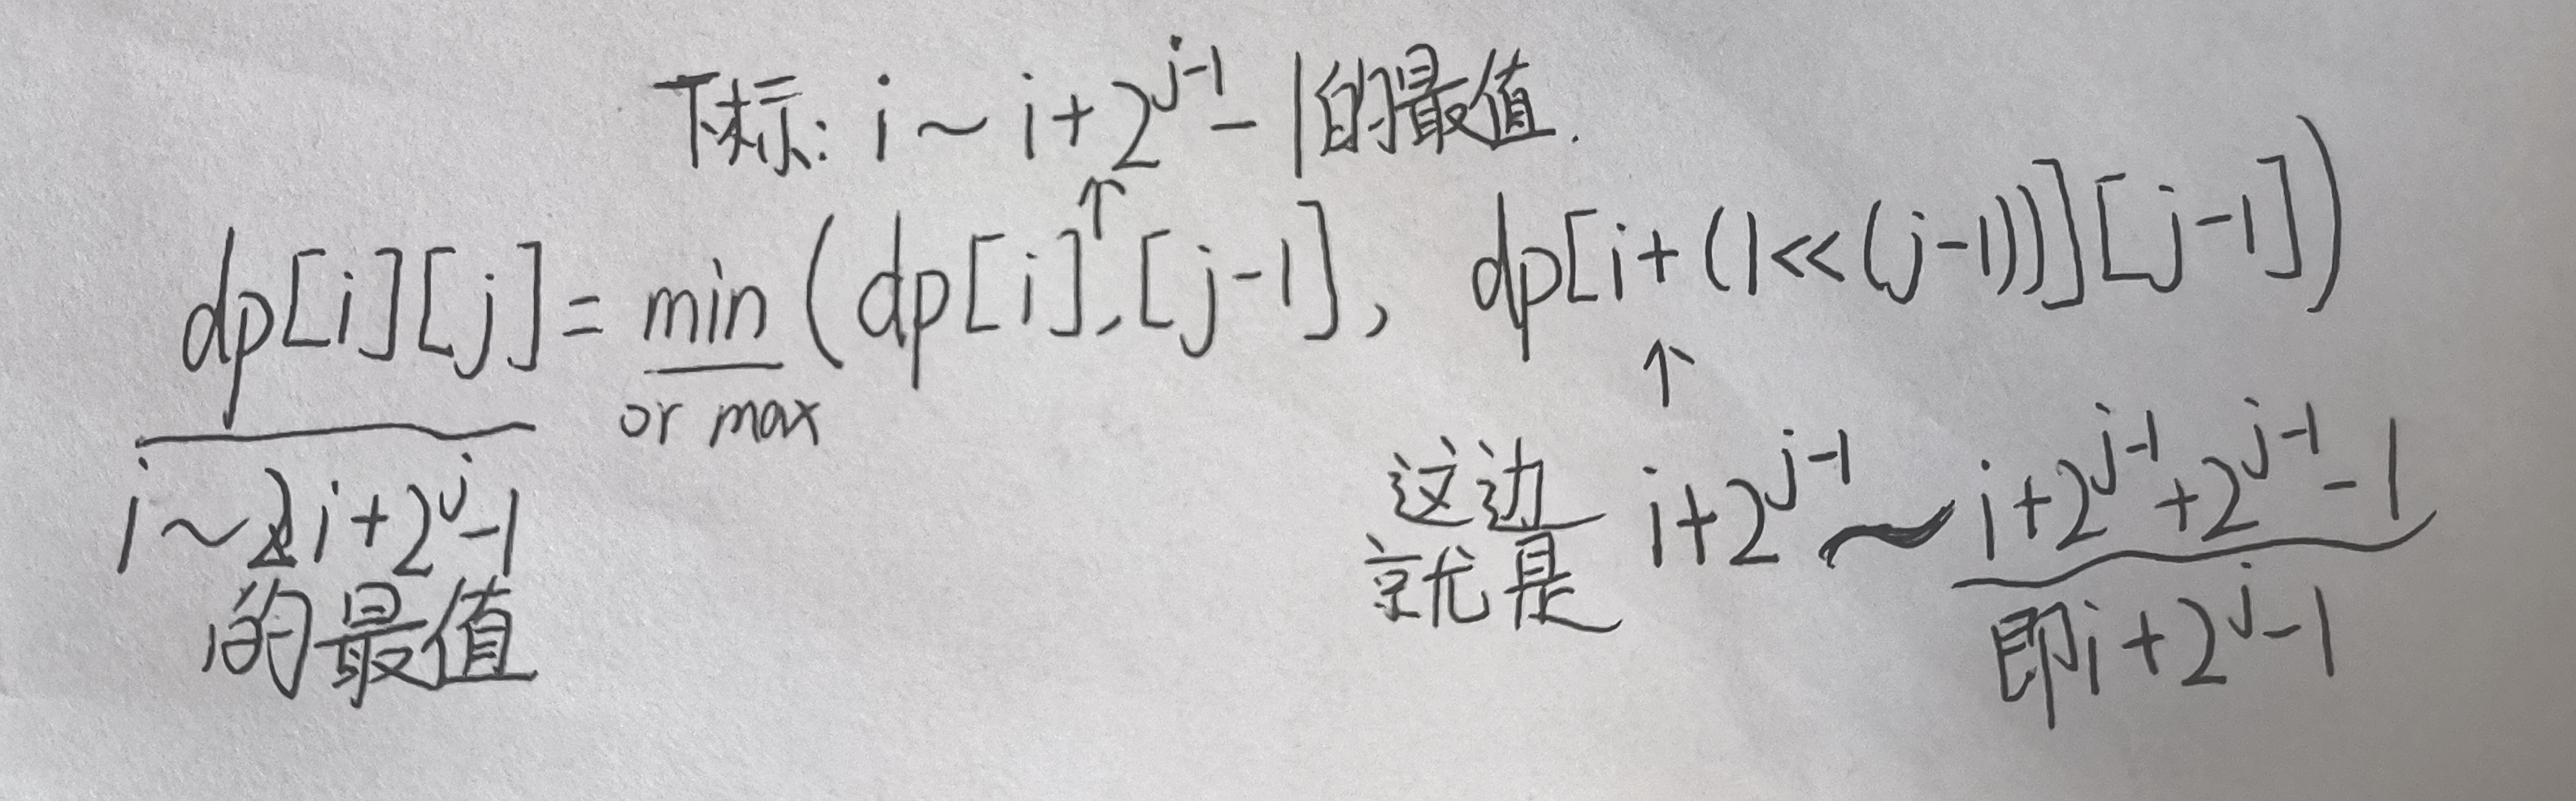 下标: i ~ i + 2^{j-1} - 1的最值.
dp[i][j] = min (dp[i],[j-1], dp[i+(1<<(j-1))][j-1])
or max
i ~ i+2^j-1
的最值
这边
就是
i+2^{j-1} ~ i+2^{j-1}+2^{j-1}-1
即i+2^j-1